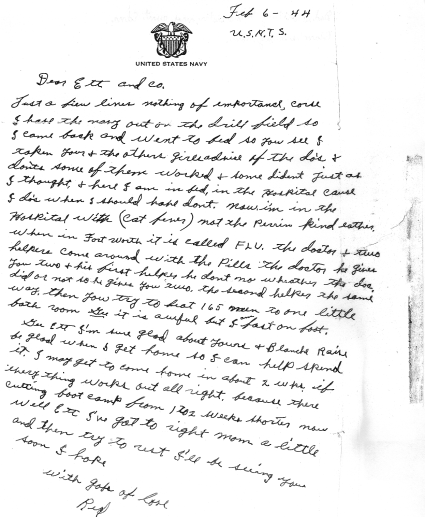 Feb 6 - 44
U.S.N.T.S.
UNITED STATES NAVY
Dear Ett and co.
Just a few lines nothing of importance, corse
I hate the navy out on the drill field so
I came back and went to bed so you see I
taken your & the others girls advice of the do's &
donts some of them worked & some dident just as
I thought, & here I am in bed, in the Hospital cause
I do's when I should hafe dont. Now im in the
Hospital with (Cat fever) not the Perrin kind either
when in Fort worth it is called FLU. the doctor & two
helpers come around with the Pills the doctor he gives
you two & his first helper he dont no wheather the doc
did or not so he gives you two, the second helper the same
way, then you try to beat 165 men to one little
bath room Gee it is awful but I fast on foot.
Gee Ett I'm sure glad about yours & Blanch Raise
be glad when I get home so I can help spend
it. I may get to come home in about 2 wks. if
every thing works out all right, because there
cutting boot camp from 1 to 2 weeks shorter now
well Ett I've got to right mom a little
and then try to rest I'll be seeing you
soon I hope
with gobs of love
Red